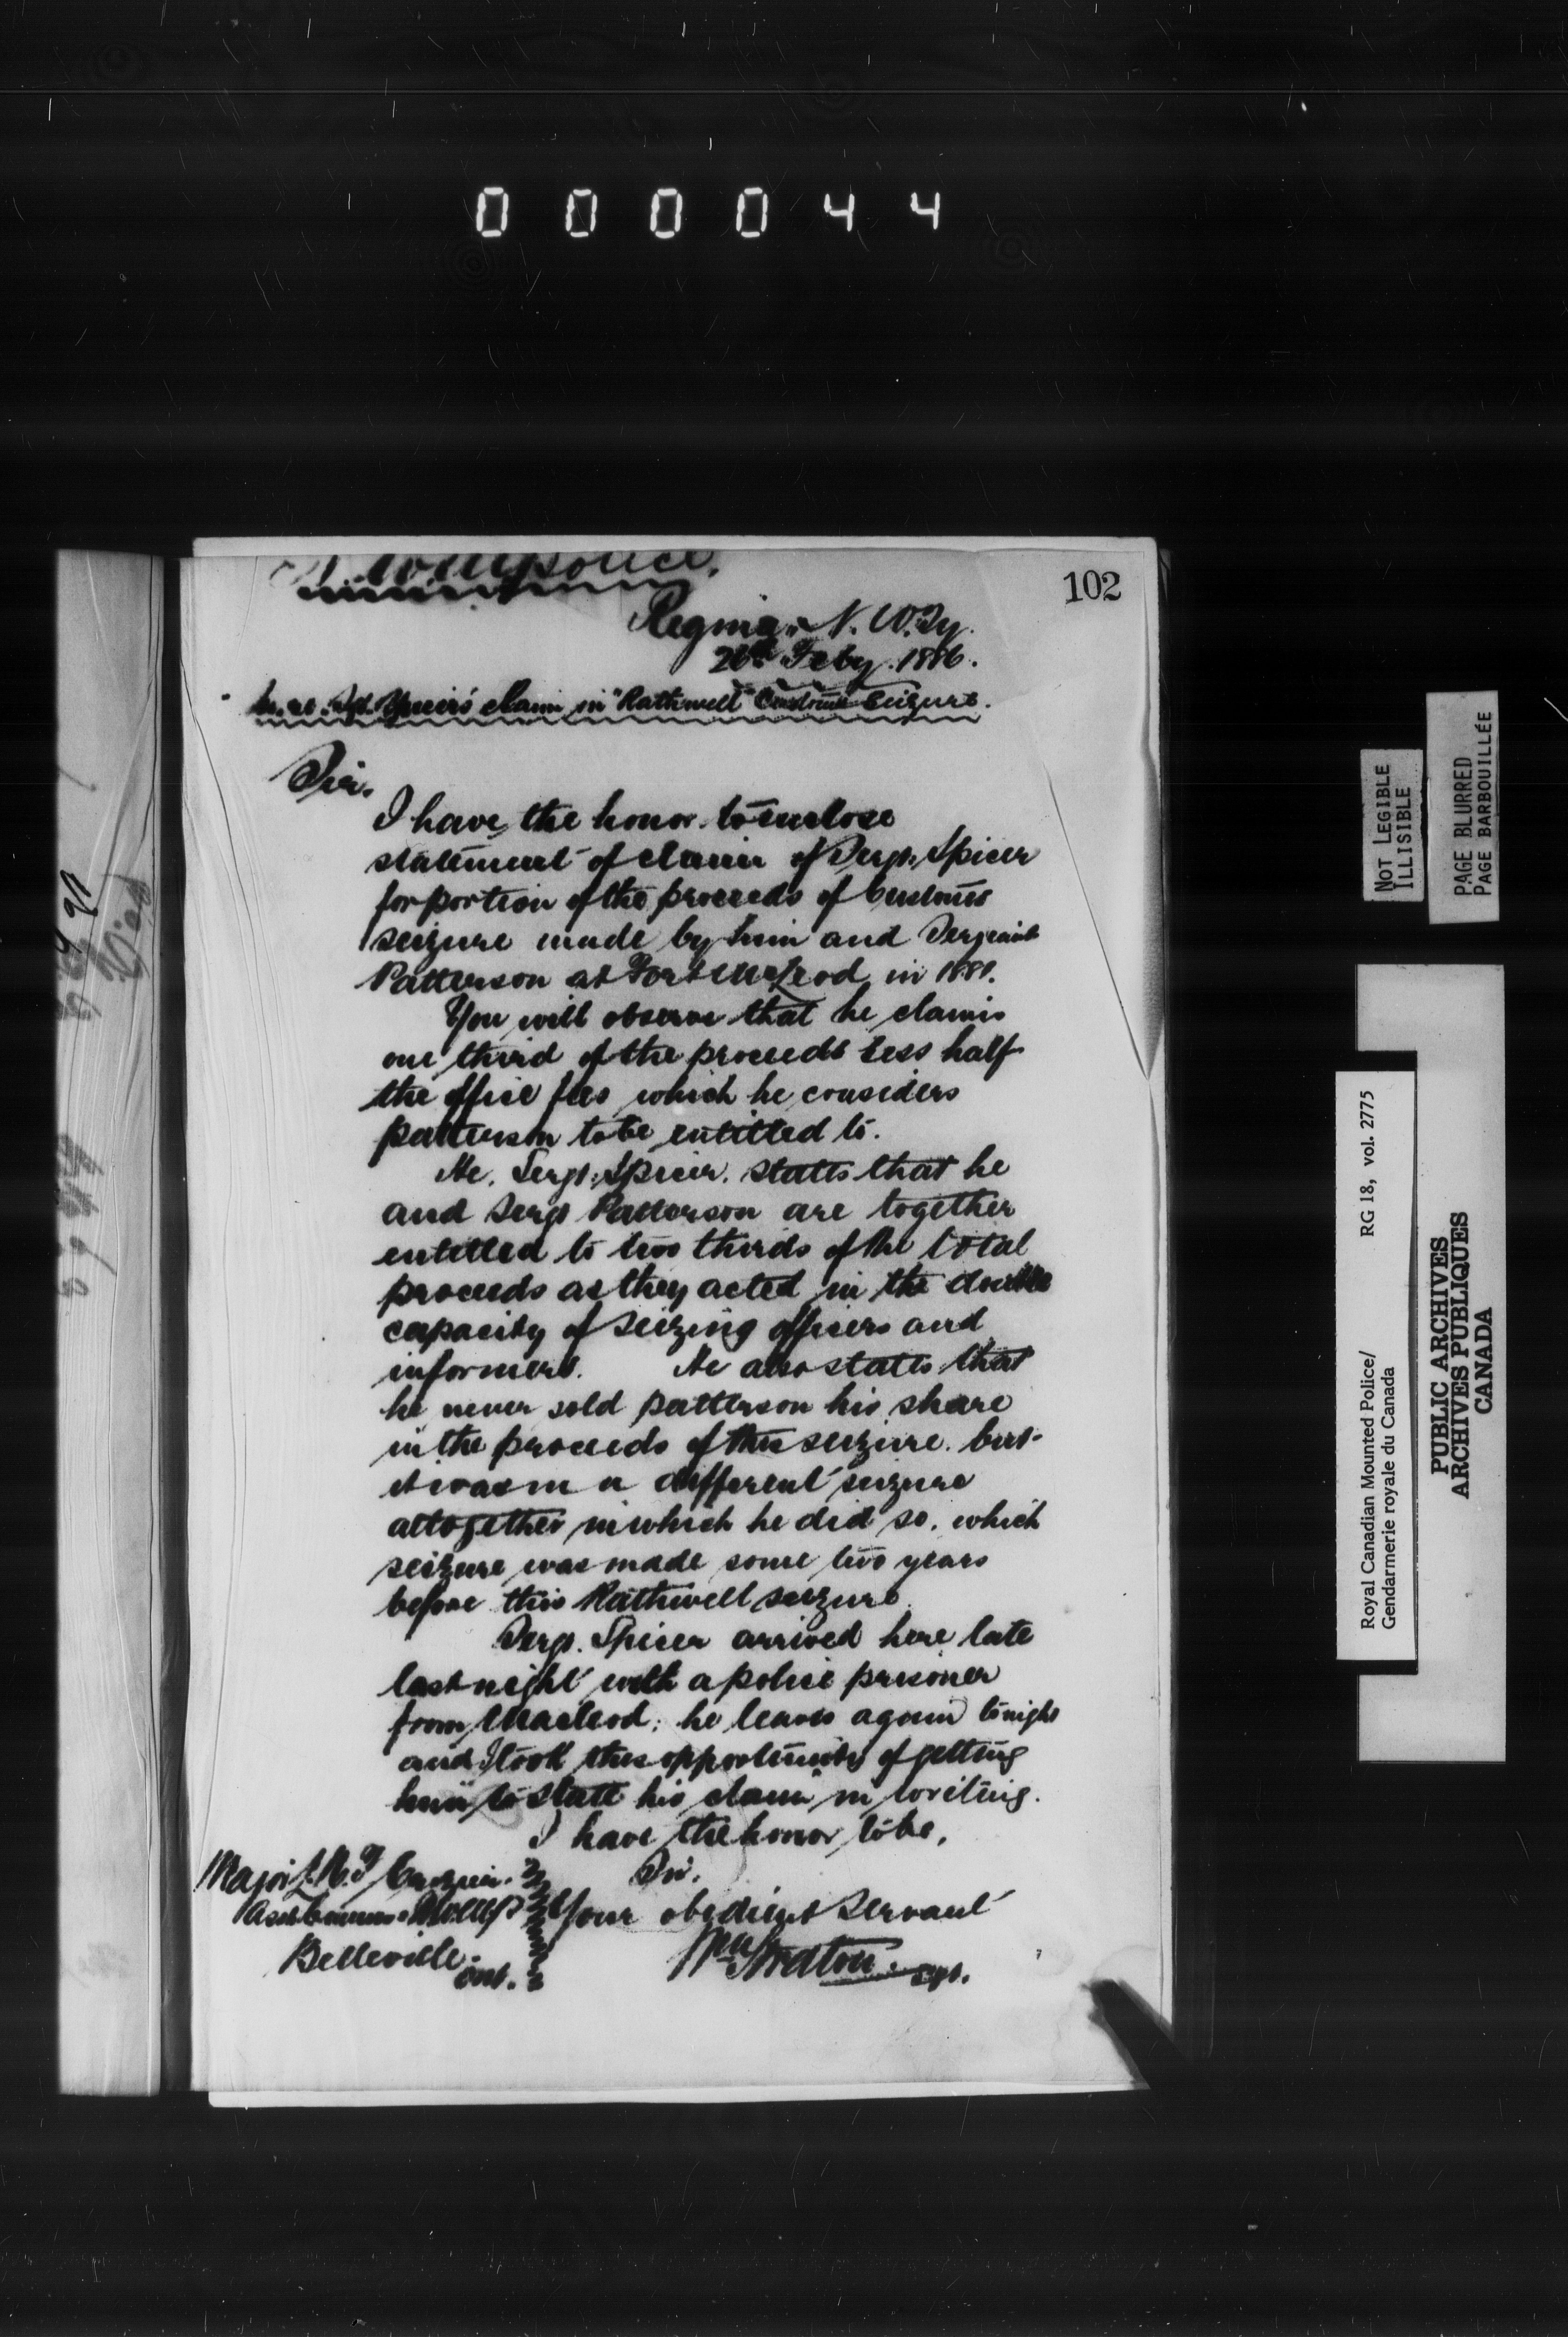 000044
102
Regina, N.W.Ty.
26th Feby. 1886.
claim in "Rathwell" Customs Seizure.
Sir.
I have the honor to enclose
statement of claim of Sergt. Spicer
for portion of the proceeds of Customs
seizure made by him and Sergeant
Patterson at Fort McLeod in 1881.
You will observe that he claims
one third of the proceeds less half
the office fees which he considers
patterson to be entitled to.
He, Sergt. Spicer, states that he
and Sergt Patterson are together
entitled to two thirds of the total
proceeds as they acted in the double
capacity of seizing officers and
informers. He also states that
he never sold patterson his share
in the proceeds of this seizure, but
it was in a different seizure
altogether in which he did so, which
seizure was made some two years
before this Rathwell seizure.
Sergt. Spicer arrived here late
last night with a police prisoner
from Macleod; he leaves again tonight
and I took this opportunity of getting
him to state his claim in writing.
I have the honor to be,
Sir.
Major L.N.F. Crozier.
Your obedient Servant
Asst Commr. NWMP
Belleville.
Ont.
NOT LEGIBLE
ILLISIBLE
PAGE BLURRED
PAGE BARBOUILLÉE
Royal Canadian Mounted Police/ RG 18, vol. 2775
Gendarmerie royale du Canada
PUBLIC ARCHIVES
ARCHIVES PUBLIQUES
CANADA